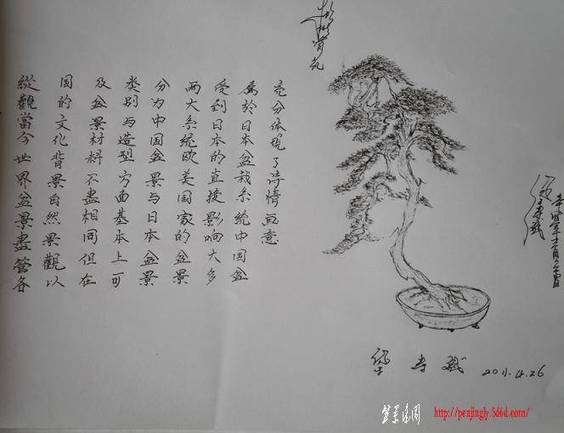 縱觀當今世界盆景盡管各
国的文化背景自然景觀以
及盆景材料不盡相同但在
类别与造型方面基本上可
分为中国盆景与日本盆景
两大系統欧美国家的盆景
受到日本的直接影响大多
属於日本盆栽系統中国盆
充分体现了诗情画意
2011.4.26
http://penjingly.5d6d.com/